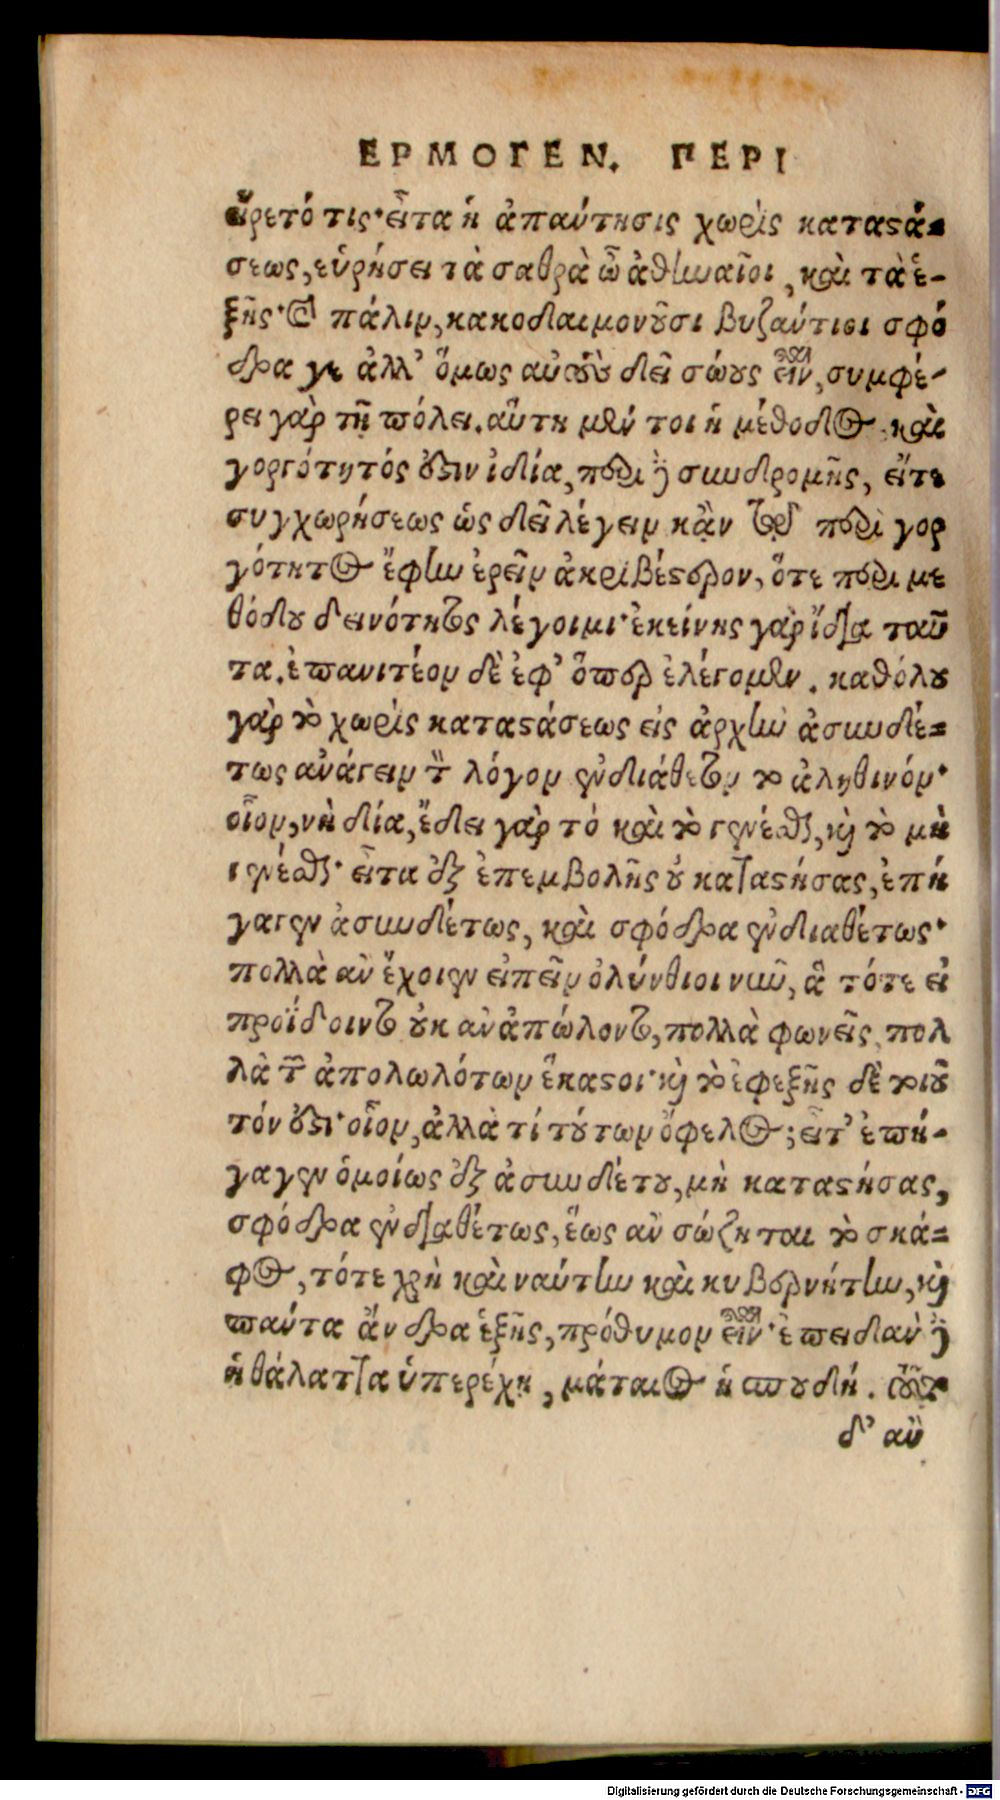 ΕΡΜΟΓΕΝ. ΠΕΡΙ
ἤρετό τις· εἶτα ἡ ἀπαύτησις χωρὶς καταστά-
σεως, εὑρήσει τὰ σαθρὰ ὦ ἀθηναῖοι, καὶ τὰ ἑ-
ξῆς· καὶ πάλιν, κακοδαιμονοῦσι βυζάντιοι σφό
δρα γε ἀλλ' ὅμως αὐτοὺς δεῖ σώους εἶναι, συμφέ-
ρει γὰρ τῇ πόλει. αὕτη μέν τοι ἡ μέθοδος καὶ
γοργότητός ἐστιν ἰδία, περὶ ἧς συνδρομῆς, εἴτε
συγχωρήσεως ὡς δεῖ λέγειν κἂν τοῖς περὶ γορ
γότητος ἔφην ἐρεῖν ἀκριβέστερον, ὅτε περὶ με
θόδου δεινότητος λέγοιμι· ἐκείνης γὰρ ἴδια ταῦ
τα. ἐπανιτέον δὲ ἐφ' ὅπερ ἐλέγομεν. καθόλου
γὰρ τὸ χωρὶς καταστάσεως εἰς ἀρχὴν ἀσυνδέ-
τως ἀνάγειν τὸν λόγον ἐνδιάθετον τὸ ἀληθινόν·
οἷον, νὴ δία, ἔδει γὰρ τὸ καὶ τὸ γενέσθαι, καὶ τὸ μὴ
γενέσθαι· εἶτα ἐξ ἐπεμβολῆς οὐ καταστήσας, ἐπή
γαγεν ἀσυνδέτως, καὶ σφόδρα ἐνδιαθέτως·
πολλὰ ἂν ἔχοιεν εἰπεῖν ὀλύνθιοι νῦν, ἃ τότε εἰ
προΐδοιντο οὐκ ἂν ἀπώλοντο, πολλὰ φωνεῖς, πολ
λὰ τῶν ἀπολωλότων ἕκαστοι· καὶ τὸ ἐφεξῆς δὲ τοιοῦ
τόν ἐστι· οἷον, ἀλλὰ τί τούτων ὄφελος; εἶτ' ἐπή-
γαγεν ὁμοίως ἐξ ἀσυνδέτου, μὴ καταστήσας,
σφόδρα ἐνδιαθέτως, ἕως ἂν σώζηται τὸ σκά-
φος, τότε χρὴ καὶ ναύτην καὶ κυβερνήτην, καὶ
πάντα ἄνδρα ἑξῆς, πρόθυμον εἶναι· ἐπειδὰν δὲ
ἡ θάλαττα ὑπερέχῃ, μάταιος ἡ σπουδή. τοῦτο
δ' αὖ
Digitalisierung gefördert durch die Deutsche Forschungsgemeinschaft - DFG